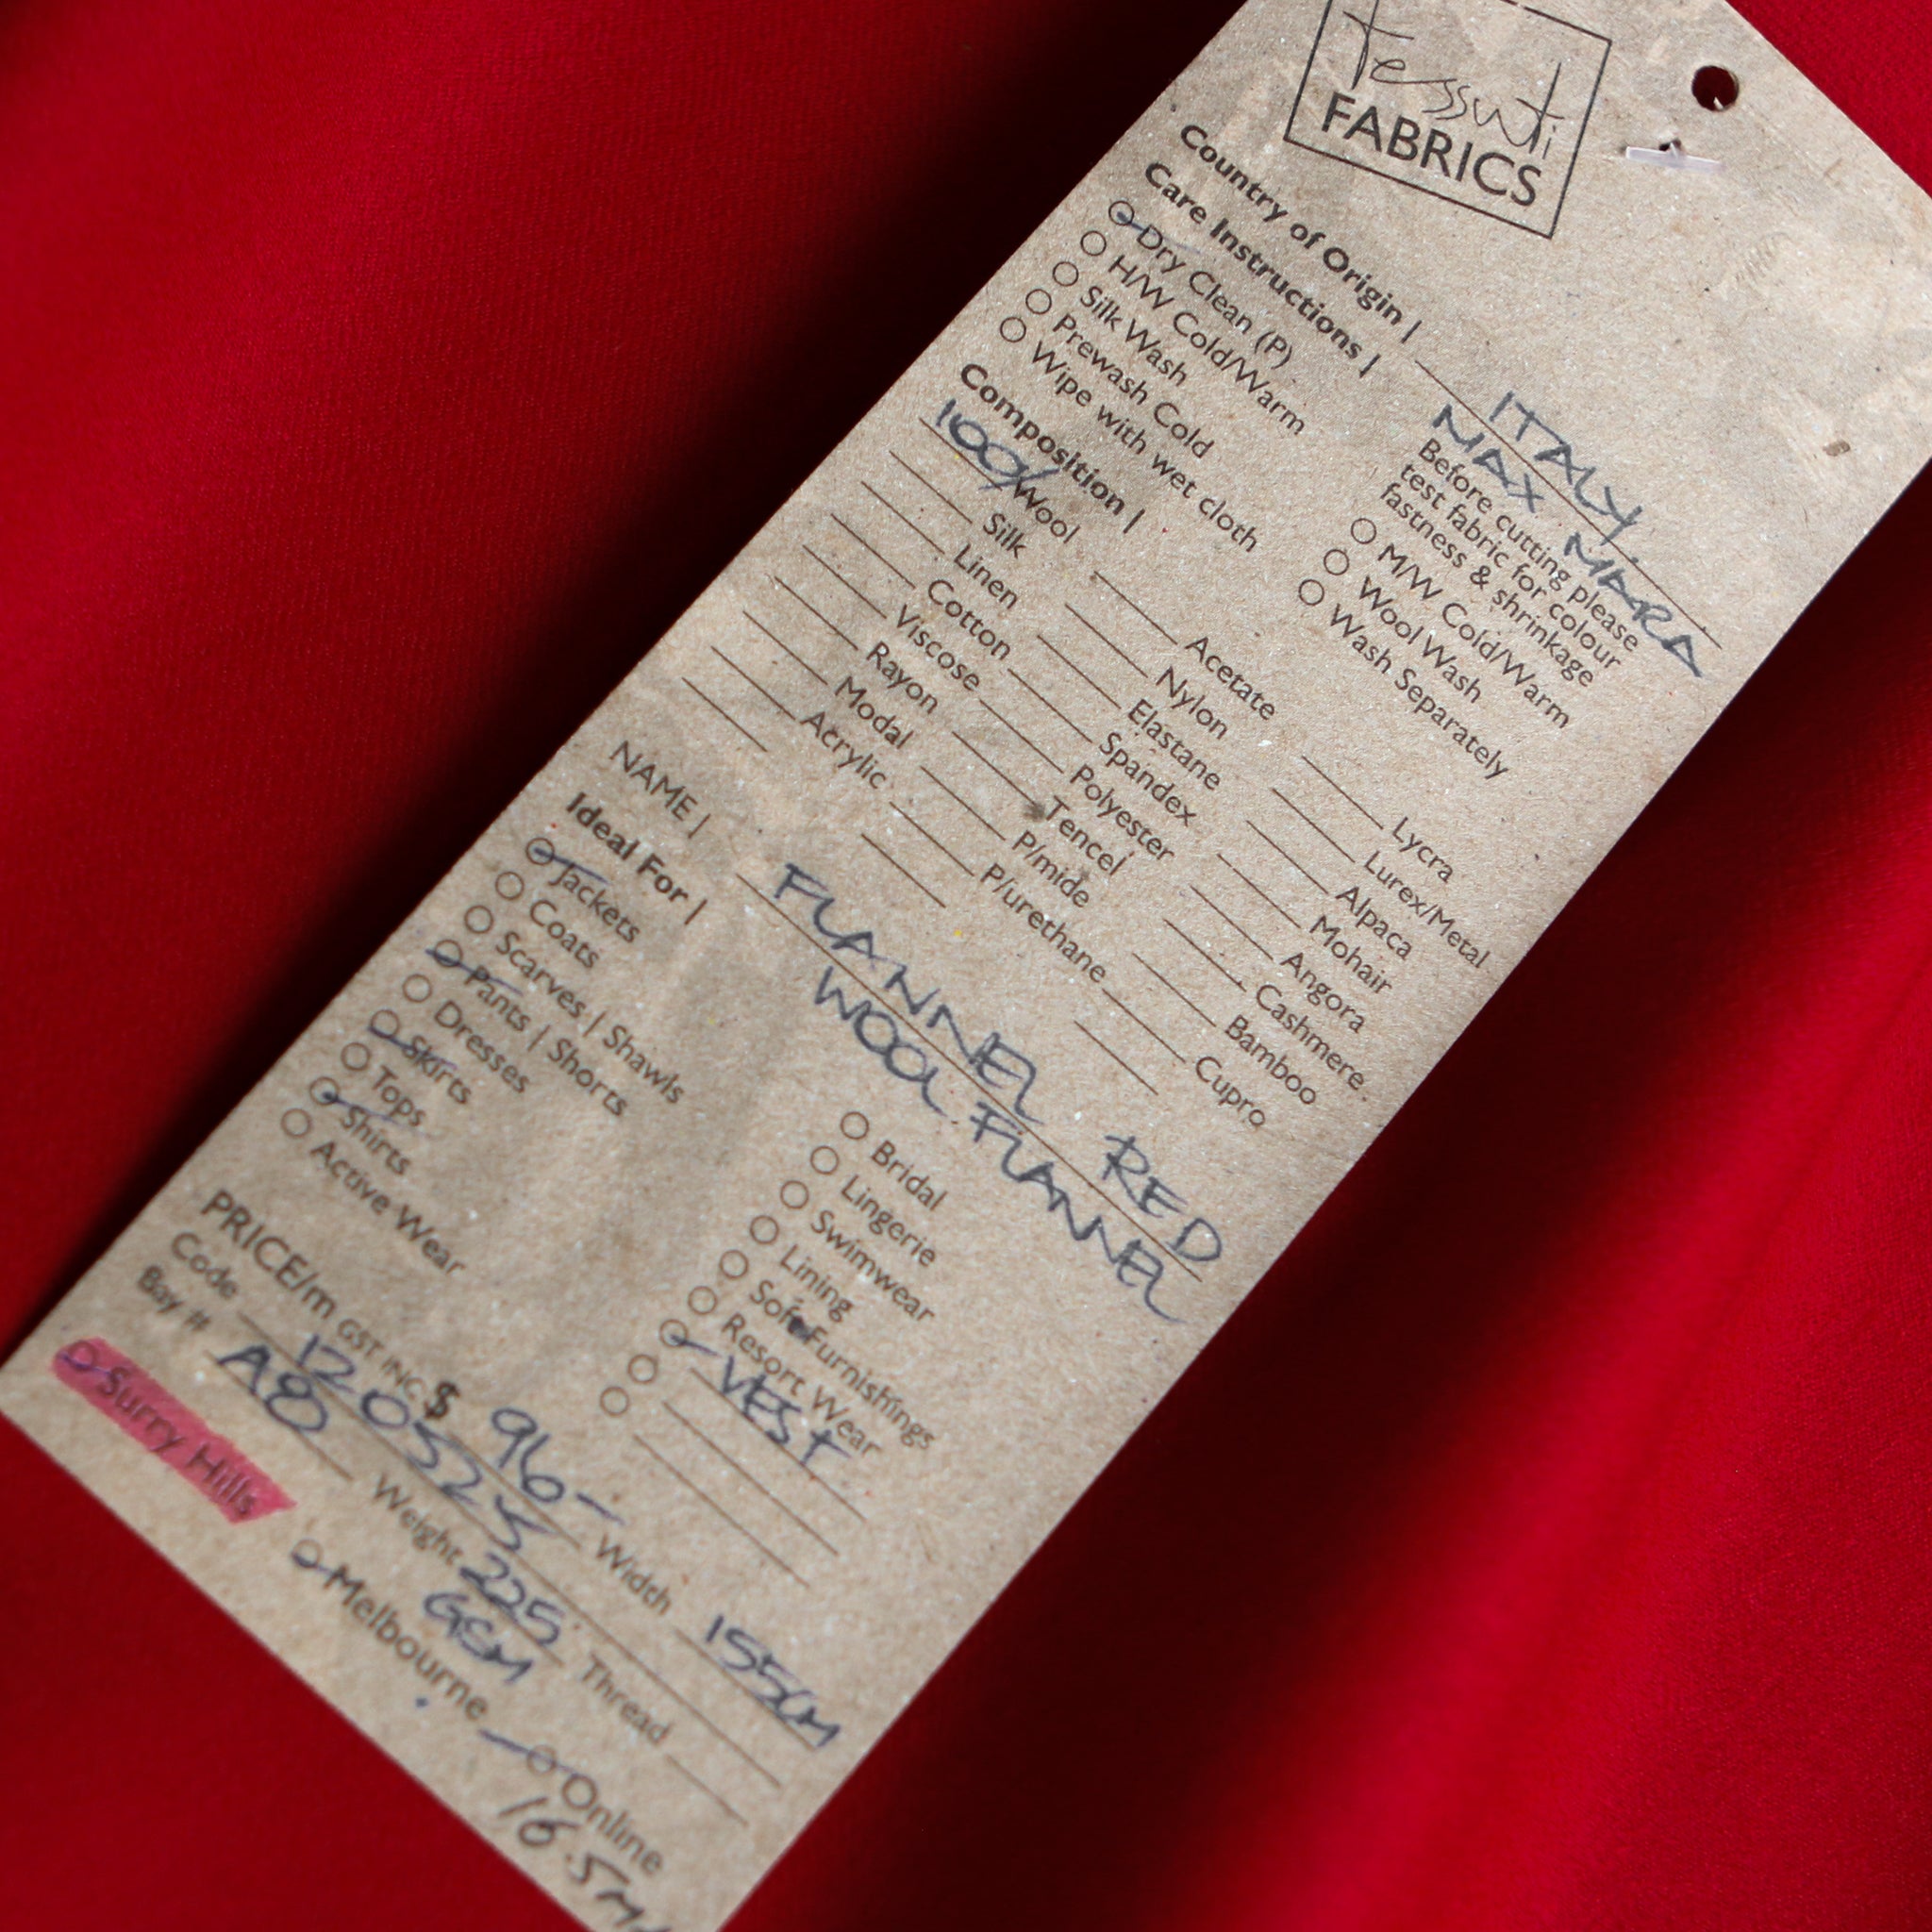 tessuti
FABRICS
Country of Origin | ITALY
MAX MARA
Care Instructions |
Before cutting please
test fabric for colour
fastness & shrinkage
Dry Clean (P)
H/W Cold/Warm
Silk Wash
Prewash Cold
Wipe with wet cloth
M/W Cold/Warm
Wool Wash
Wash Separately
Composition |
100% Wool
Silk
Linen
Cotton
Viscose
Rayon
Modal
Acrylic
Acetate
Nylon
Elastane
Spandex
Polyester
Tencel
P/mide
P/urethane
Lycra
Lurex/Metal
Alpaca
Mohair
Angora
Cashmere
Bamboo
Cupro
NAME | FLANNEL RED
WOOL FLANNEL
Ideal For |
Jackets
Coats
Scarves | Shawls
Pants | Shorts
Dresses
Skirts
Tops
Shirts
Active Wear
Bridal
Lingerie
Swimwear
Lining
Soft Furnishings
Resort Wear
VEST
PRICE/m GST INC $ 96- Width 155CM
Code 1205325
Bay # A8 Weight 225 GSM Thread
Surry Hills Melbourne Online